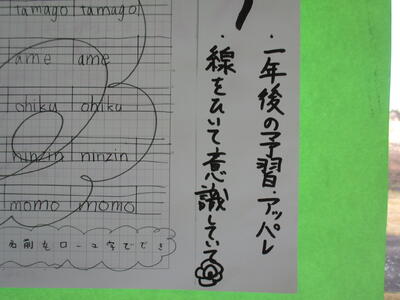 tamago tamago
ame ame
ohiku ohiku
ninzin ninzin
momo momo
名前をローマ字でき
・一年後の予習・アッパレ
・線をひいて意識している